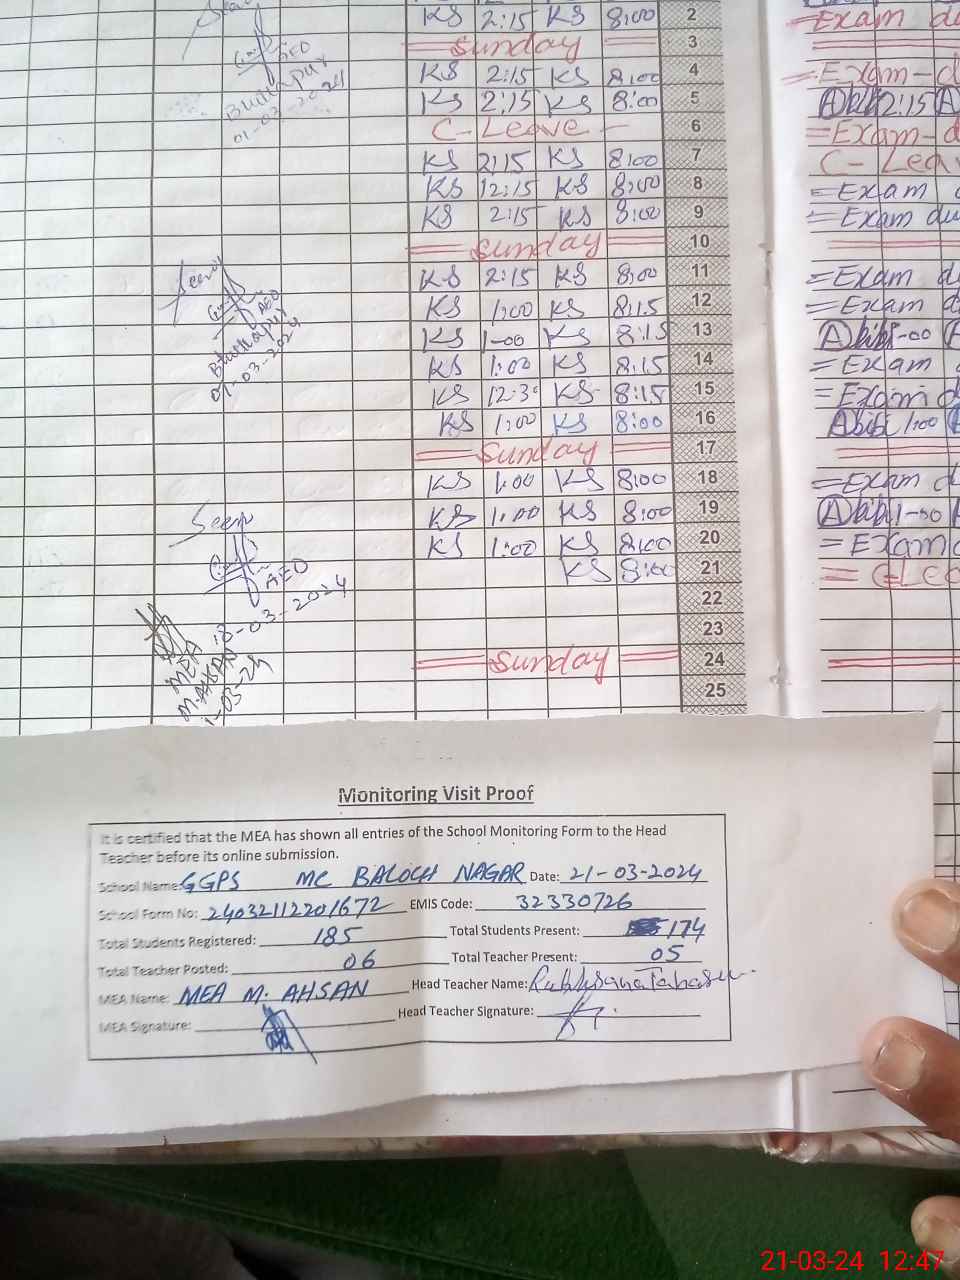 KS 2:15 KS 8:00 2
Sunday 3
KS 2:15 KS 8:00 4
KS 2:15 KS 8:00 5
C-Leave 6
KS 2:15 KS 8:00 7
KS 12:15 KS 8:00 8
KS 2:15 KS 8:00 9
Sunday 10
KS 2:15 KS 8:00 11
KS 1:00 KS 8:15 12
KS 1-00 KS 8:15 13
KS 1:00 KS 8:15 14
KS 12:30 KS 8:15 15
KS 1:00 KS 8:00 16
Sunday 17
KS 1:00 KS 8:00 18
KS 1:00 KS 8:00 19
KS 1:00 KS 8:00 20
KS 8:00 21
22
23
Sunday 24
25
AEO
01-03-2024
Seen
AEO
Seen
AEO
18-03-2024
MEA
M.AHSAN
Exam du
Exam-d
2:15
Exam-d
C-Lea
Exam d
Exam du
Exam d
Exam d
1-00
Exam d
Exam d
1:00
Exam d
1-00
Exam d
C-Lea
Monitoring Visit Proof
It is certified that the MEA has shown all entries of the School Monitoring Form to the Head
Teacher before its online submission.
School Name: GGPS MC BALOCH NAGAR Date: 21-03-2024
School Form No: 24032112201672 EMIS Code: 32330726
Total Students Registered: 185 Total Students Present: 174
Total Teacher Posted: 06 Total Teacher Present: 05
MEA Name: MEA M. AHSAN Head Teacher Name: Rukhsana Tabasum
MEA Signature: Head Teacher Signature:
21-03-24 12:47